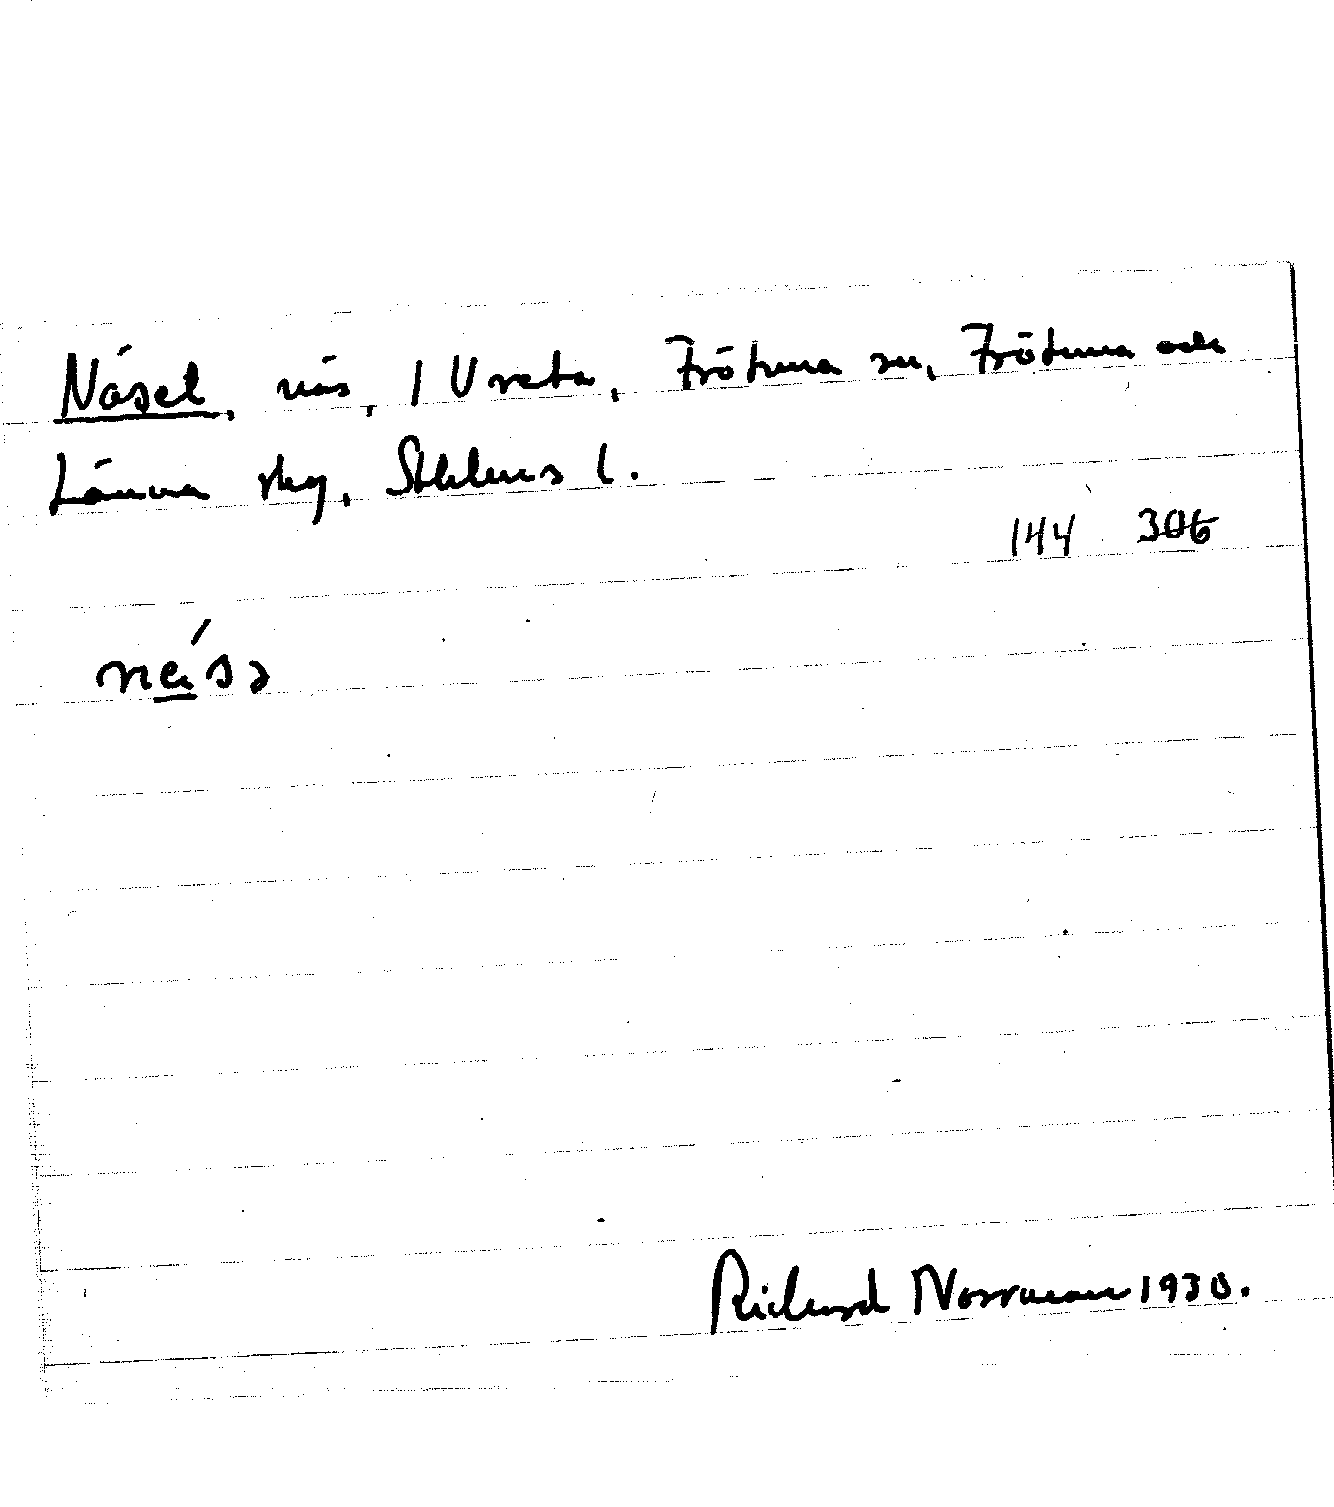 Näset, näs, 1 Vreta, Frötuna sn, Frötuna och
Länna skg, Sthlms l.
144 306
Richard Norrman 1930.